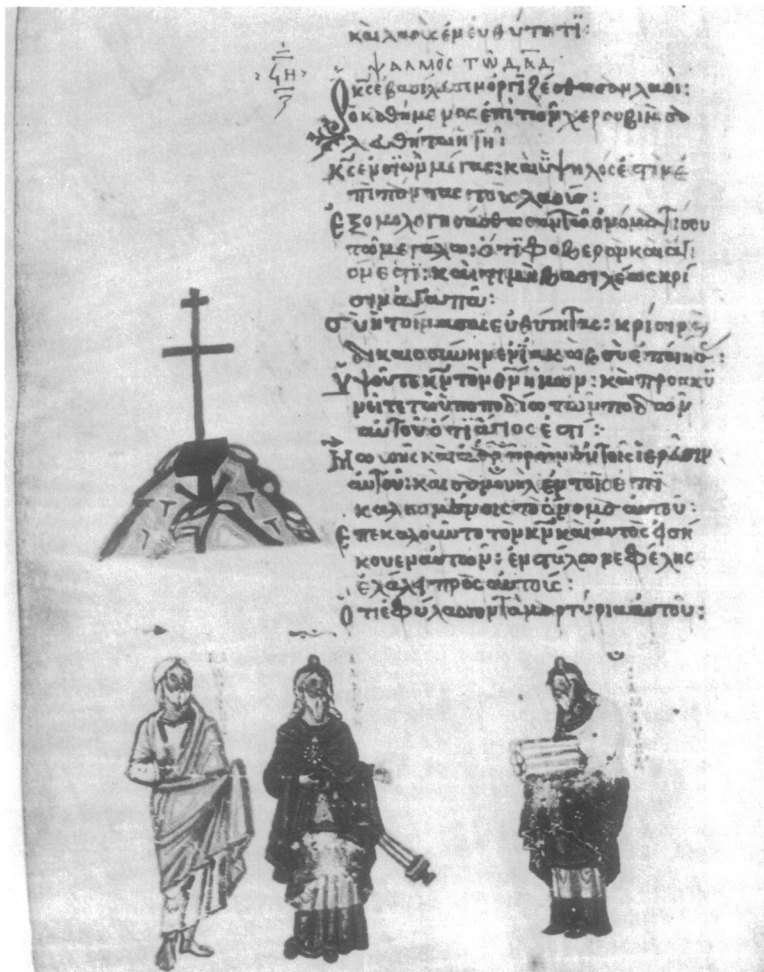 καὶ λαοὺς ἐν εὐθύτητι:
ϟΗ
ψαλμὸς τῶ δᾱδ
Ὁ κ̄ς ἐβασίλευσεν ὀργιζέσθωσαν λαοί:
ὁ καθήμενος ἐπὶ τῶν χερουβὶμ σα
λευθήτω ἡ γῆ:
κ̄ς ἐν σιὼν μέγας: καὶ ὑψηλός ἐστιν ἐ
πὶ πάντας τοὺς λαούς:
Ἐξομολογησάσθωσαν τῶ ὀνόματί σου
τῶ μεγάλω: ὅτι φοβερὸν καὶ ἅγι
όν ἐστι: καὶ τιμὴ βασιλέως κρί
σιν ἀγαπᾶ:
σὺ ἡτοίμασας εὐθύτητας: κρίσιν κ(αὶ)
δικαιοσύνην ἐν ἰακὼβ σὺ ἐποίησας:
Ὑψοῦτε κ̄ν τὸν θ̄ν ἡμῶν: καὶ προσκυ
νεῖτε τῶ ὑποποδίω τῶν ποδῶν
αὐτοῦ ὅτι ἅγιός ἐστι:
Μωυσῆς καὶ ἀαρὼν ἐν τοῖς ἱερεῦσιν
αὐτοῦ: καὶ σαμουὴλ ἐν τοῖς ἐπι
καλουμένοις τὸ ὄνομα αὐτοῦ:
Ἐπεκαλοῦντο τὸν κ̄ν καὶ αὐτὸς εἰσή
κουεν αὐτῶν: ἐν στύλω νεφέλης
ἐλάλει πρὸς αὐτούς:
Ὅτι ἐφύλασσον τὰ μαρτύρια αὐτοῦ: